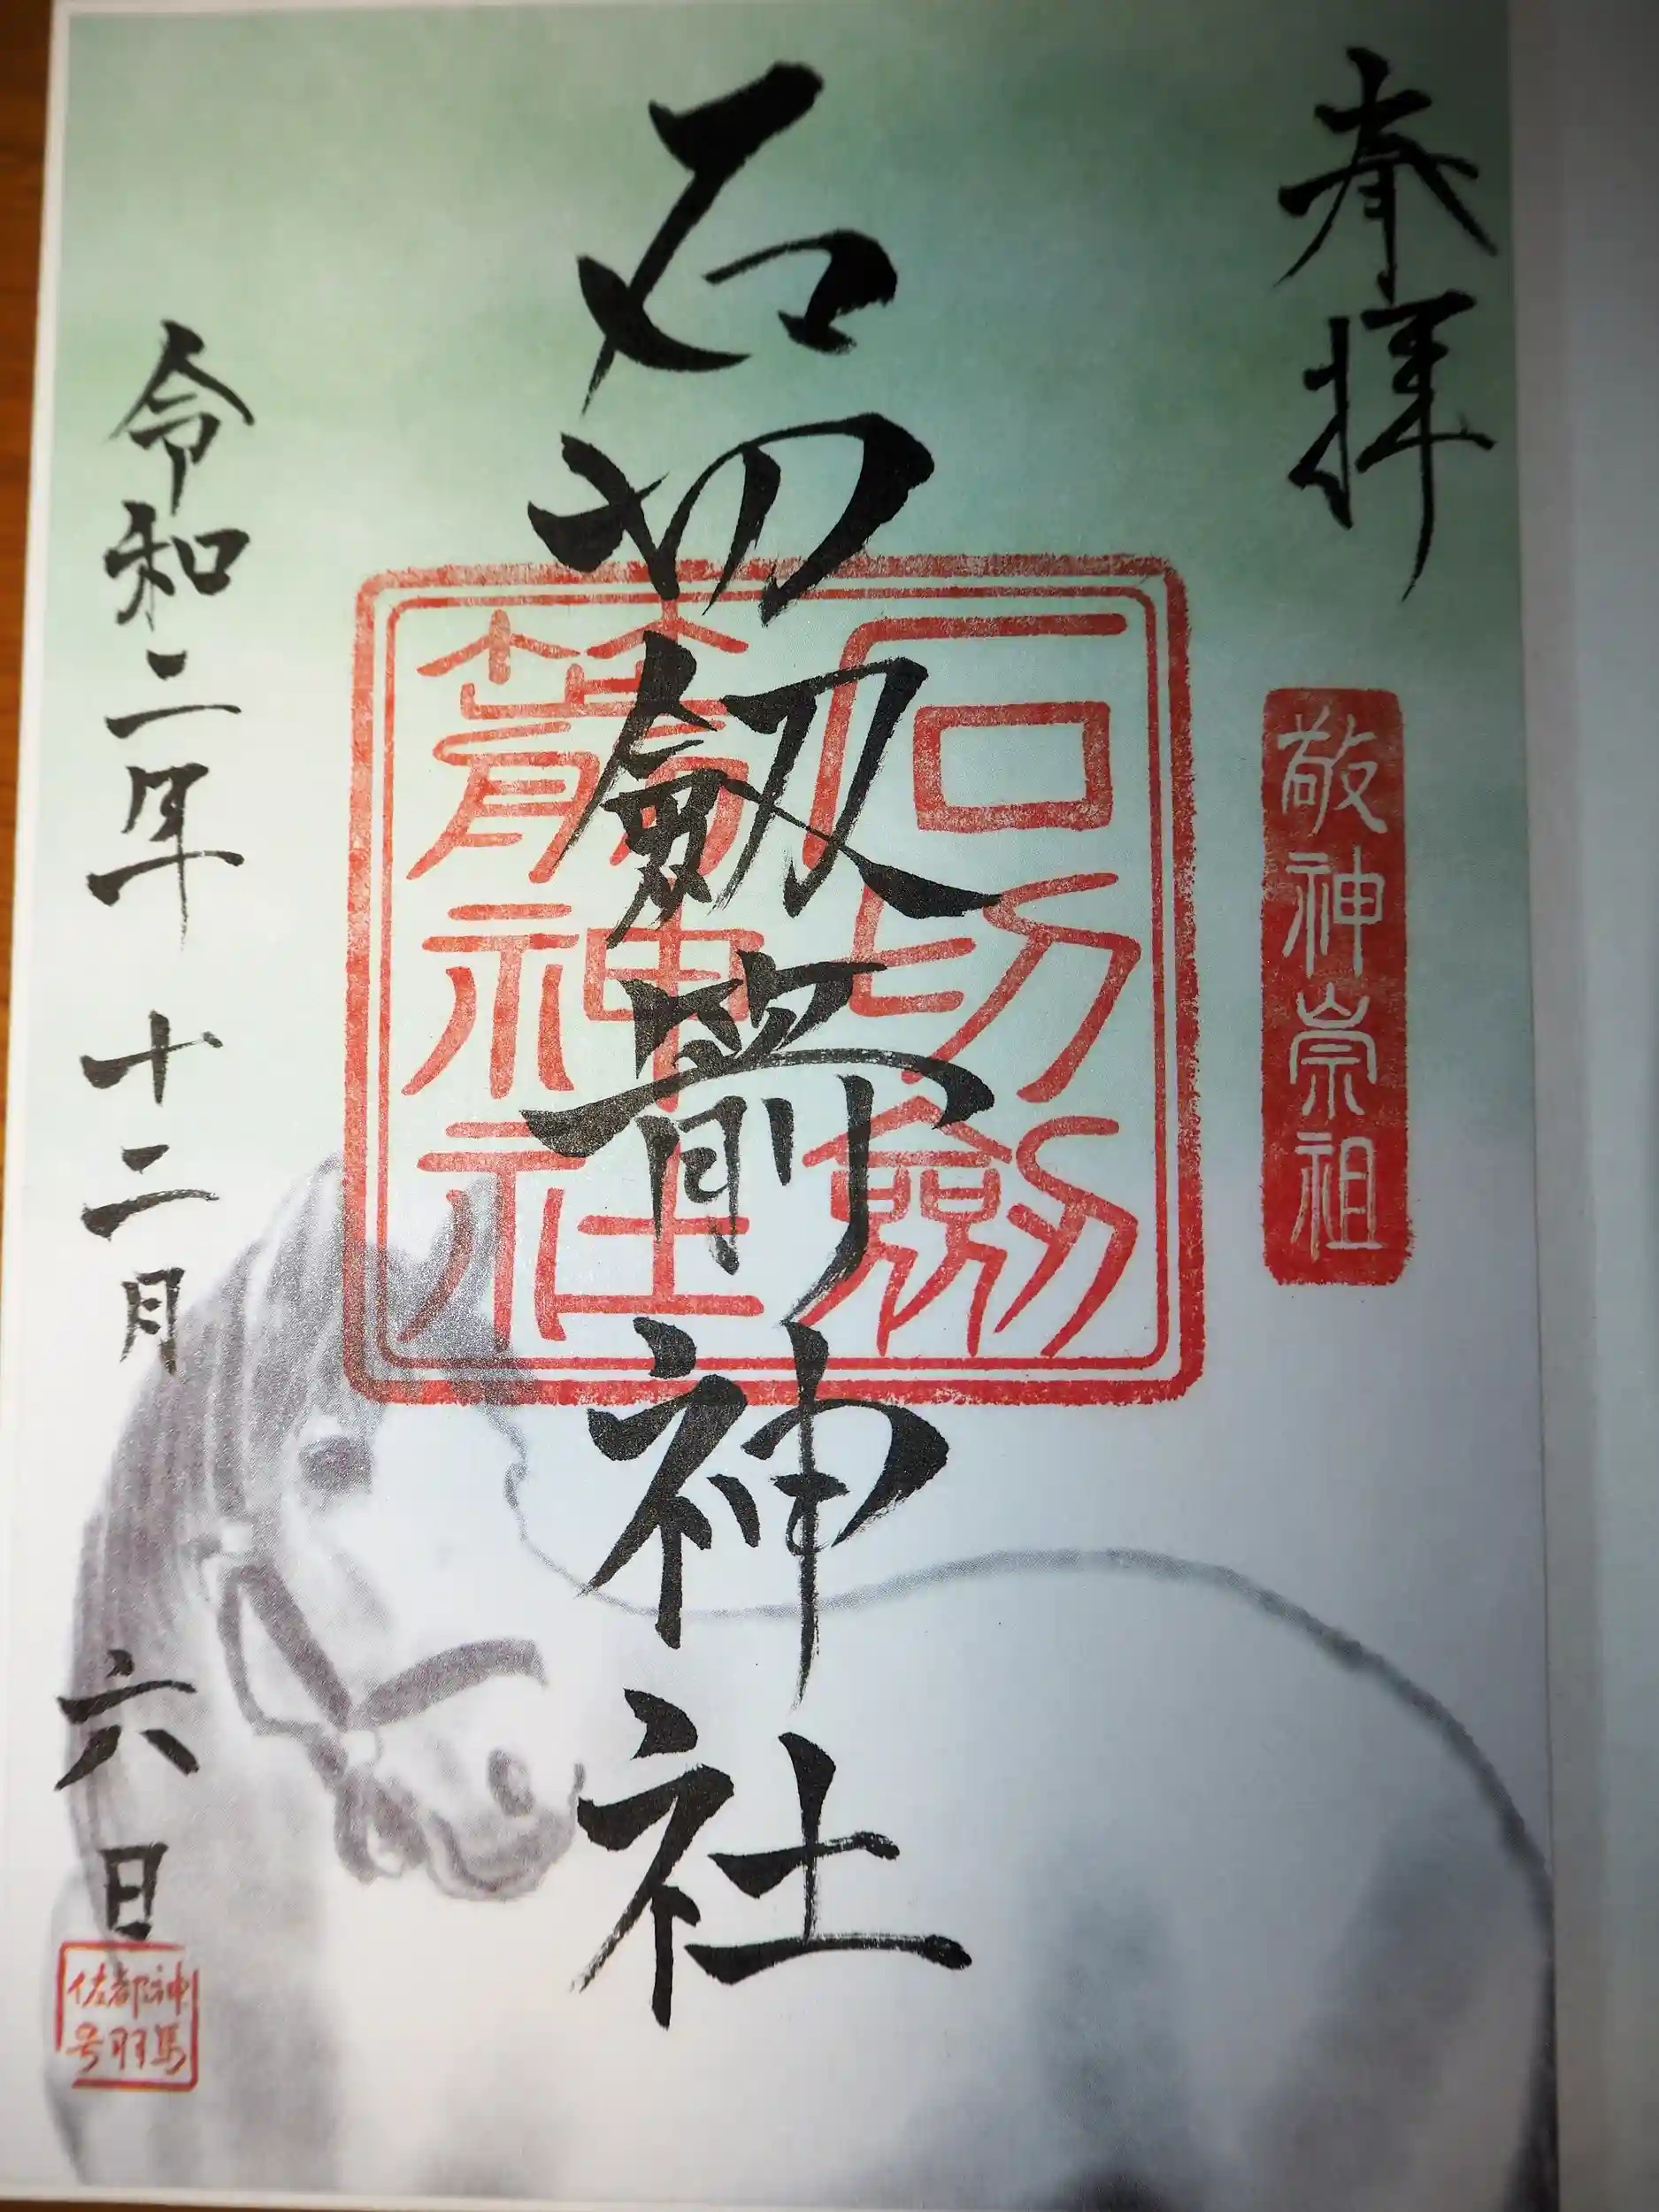 奉拝
敬神崇祖
石切劔箭神社
石切劔
箭神社
令和二年 十二月 六日
神馬
都羽
佐号